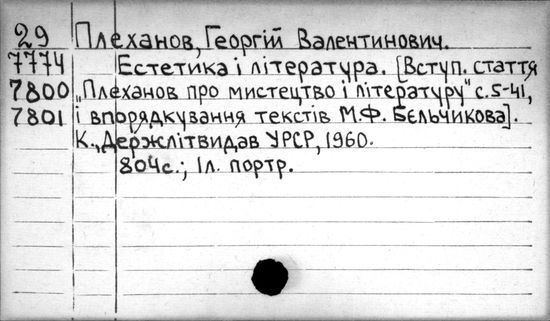 29 Плеханов, Георгій Валентинович.
7774 Естетика і література. [Вступ. стаття
7800 „Плеханов про мистецтво і літературу" с.5-41,
7801 і впорядкування текстів М.Ф. Бєльчикова].
К., Держлітвидав УРСР, 1960.
804с.; Іл. портр.